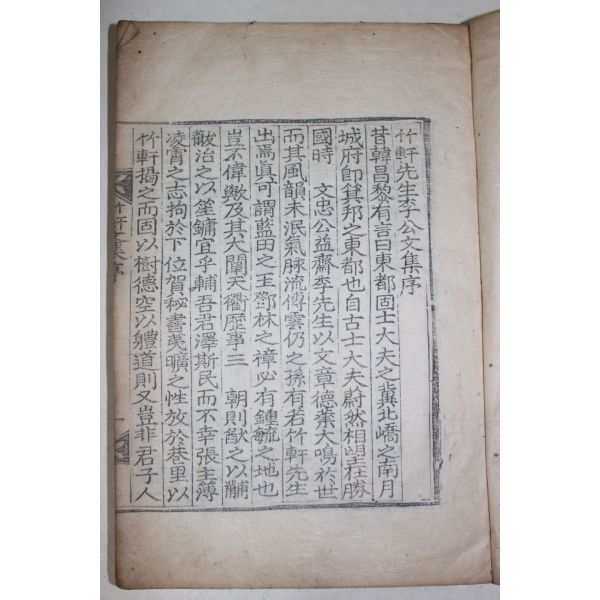 竹軒先生李公文集序
昔韓昌黎有言曰東都固士大夫之冀北嶠之南月
城府卽箕邦之東都也自古士大夫蔚然相望在勝
國時 文忠公益齋李先生以文章德業大鳴於世
而其風韻未泯氣脉流傳雲仍之孫有若竹軒先生
出焉眞可謂藍田之玉鄧林之樟必有鍾毓之地也
豈不偉歟及其大闡天衢歷事三 朝則猷之以黼
黻治之以笙鏞宜乎輔吾君澤斯民而不幸張主簿
凌霄之志拘於下位賀秘書曠之性放於巷里以
竹軒揭之而固以樹德空以軆道則又豈非君子人
竹軒集序
一